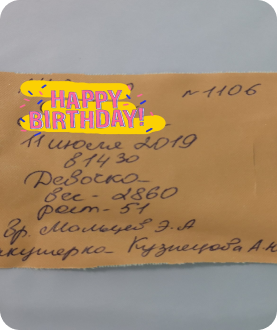 N 1106
HAPPY
BIRTHDAY!
11 июля 2019
в 14 30
Девочка
вес - 2860
рост - 51
Вр. Мальцев Э. А
акушерка Кузнецова А.Н